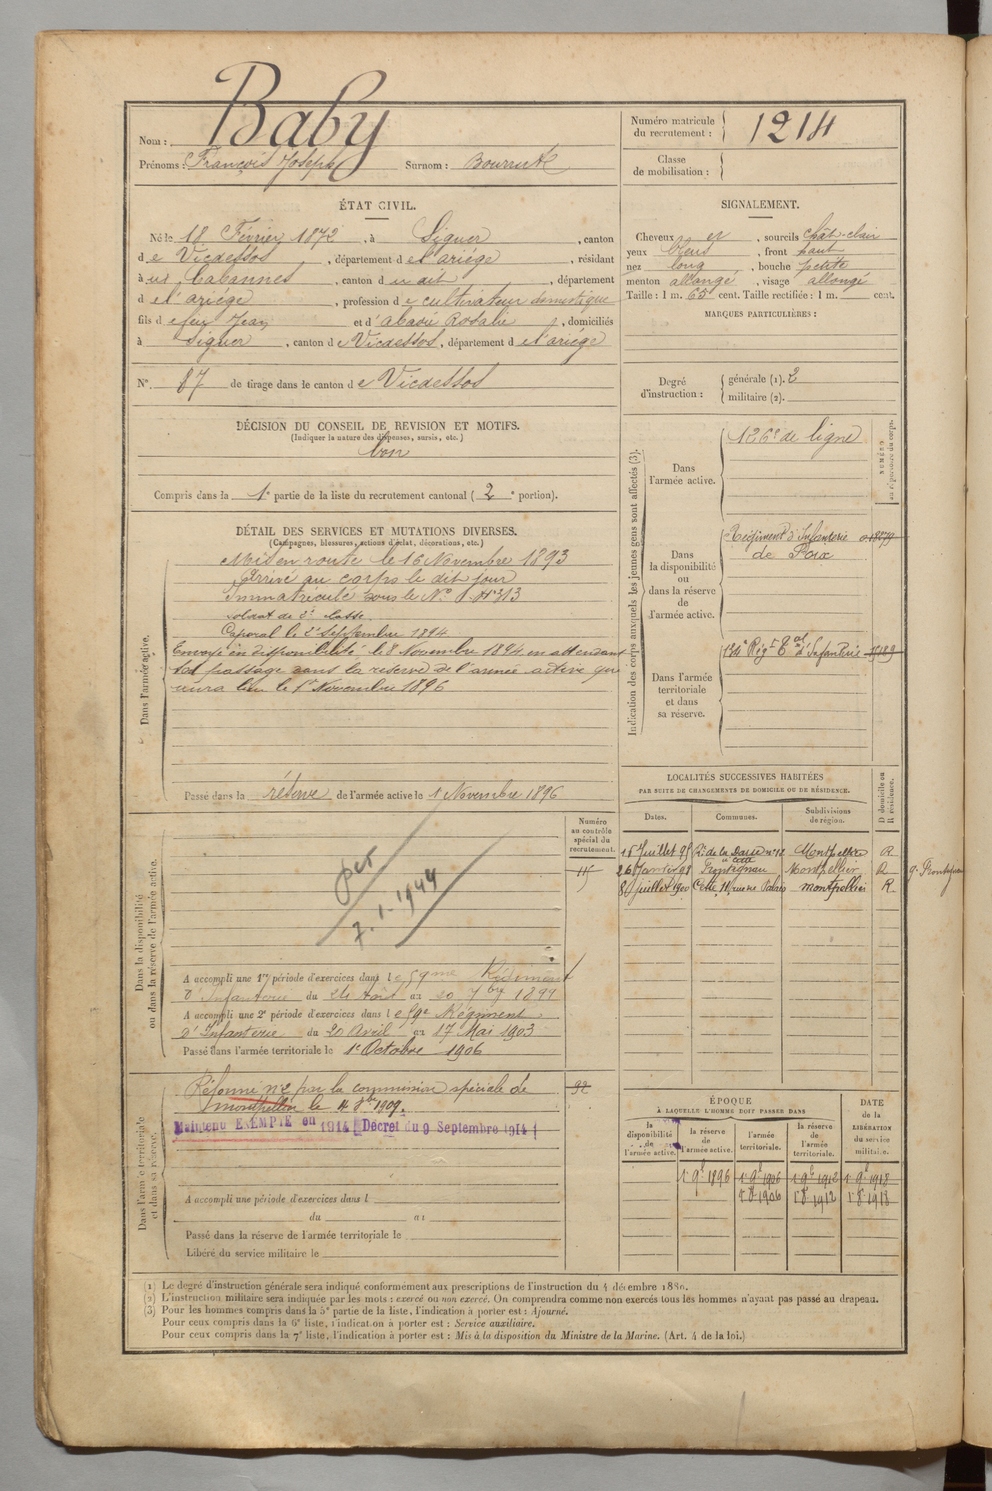 Nom : Baby
Prénoms : François Joseph Surnom :
Numéro matricule
du recrutement : 1214
Classe
de mobilisation :
ÉTAT CIVIL.
Né le 18 Février 1872, à Siguer, canton
de Vicdessos, département de l'ariége, résidant
à Cabannes, canton du dit, département
de l'ariége, profession de cultivateur domestique
fils de feu Jean et d'abavie Rosalie, domiciliés
à Siguer, canton de Vicdessos, département de l'ariége
N°. 87 de tirage dans le canton de Vicdessos
DÉCISION DU CONSEIL DE REVISION ET MOTIFS.
(Indiquer la nature des dispenses, sursis, etc.)
bon
Compris dans la 1e partie de la liste du recrutement cantonal (2e portion).
DÉTAIL DES SERVICES ET MUTATIONS DIVERSES.
(Campagnes, blessures, actions d'éclat, décorations, etc.)
Dans l'armée active.
Mis en route le 16 Novembre 1893
Arrivé au corps le dit jour
Immatriculé sous le N°
soldat de 2e classe
Caporal le 2 Septembre 1894
Envoyé en disponibilité le 8 Novembre 1894 en attendant
son passage dans la réserve de l'armée active qui
aura lieu le 1er Novembre 1896
Passé dans la réserve de l'armée active le 1 Novembre 1896
SIGNALEMENT.
Cheveux et, sourcils chât-clair
yeux bleus, front haut
nez long, bouche petite
menton allongé, visage allongé
Taille : 1 m. 65 cent. Taille rectifiée : 1 m. cent.
MARQUES PARTICULIÈRES :
Degré
d'instruction :
générale (1). 2
militaire (2).
Indication des corps auxquels les jeunes gens sont affectés (3).
NUMÉRO
au répertoire du corps.
Dans
l'armée active.
126e de ligne
Dans
la disponibilité
ou
dans la réserve
de
l'armée active.
Régiment d'Infanterie
de Foix
Dans l'armée
territoriale
et dans
sa réserve.
134e Rég. Tal d'Infanterie
LOCALITÉS SUCCESSIVES HABITÉES
PAR SUITE DE CHANGEMENTS DE DOMICILE OU DE RÉSIDENCE.
Dates. Communes. Subdivisions
de région.
D domicile ou
R résidence.
Juillet 95 n° 12 Montpellier R
à Cette
26 Janvier 98 Frontignan Montpellier R
8 juillet 1900 Cette, rue du Palais montpellier R
Numéro
au contrôle
spécial du
recrutement.
Dans la disponibilité
ou dans la réserve de l'armée active.
7.1.1944
A accompli une 1re période d'exercices dans le 59me Régiment
d'Infanterie du 24 Août au 20 7bre 1899
A accompli une 2e période d'exercices dans le 59e Régiment
d'Infanterie du 20 Avril au 17 Mai 1903
Passé dans l'armée territoriale le 1er Octobre 1906
Dans l'armée territoriale
et dans sa réserve.
Réformé n°2 par la commission spéciale de
montpellier le 4 8bre 1909.
Maintenu EXEMPTE en 1914 Décret du 9 Septembre 1914
32
A accompli une période d'exercices dans l
du au
Passé dans la réserve de l'armée territoriale le
Libéré du service militaire le
ÉPOQUE
À LAQUELLE L'HOMME DOIT PASSER DANS
DATE
de la
LIBÉRATION
du service
militaire.
la
disponibilité
de
l'armée active.
la réserve
de
l'armée active.
l'armée
territoriale.
la réserve
de
l'armée
territoriale.
1er 9bre 1896 1er 9bre 1906 1er 9bre 1912 1er 9bre 1918
1er 8bre 1906 1er 8bre 1912 1er 8bre 1918
(1) Le degré d'instruction générale sera indiqué conformément aux prescriptions de l'instruction du 4 décembre 1889.
(2) L'instruction militaire sera indiquée par les mots : exercé ou non exercé. On comprendra comme non exercés tous les hommes n'ayant pas passé au drapeau.
(3) Pour les hommes compris dans la 5e partie de la liste, l'indication à porter est : Ajourné.
Pour ceux compris dans la 6e liste, l'indication à porter est : Service auxiliaire.
Pour ceux compris dans la 7e liste, l'indication à porter est : Mis à la disposition du Ministre de la Marine. (Art. 4 de la loi.)